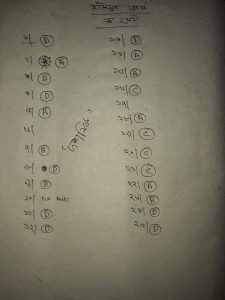 ক সেট
১/ B
২/ A
৩/ B
৪/ B
৫/ A
৬/
৭/ B
৮/ D
৯/ B
১০/ no ans
১১/ D
১২/ B
১৩/ B
১৪/ A
১৫/ A
১৬/ C
১৭/
১৮/ A
১৯/ C
২০/ C
২১/ C
২২/ A
২৩/ A
২৪/ B
২৫/ D